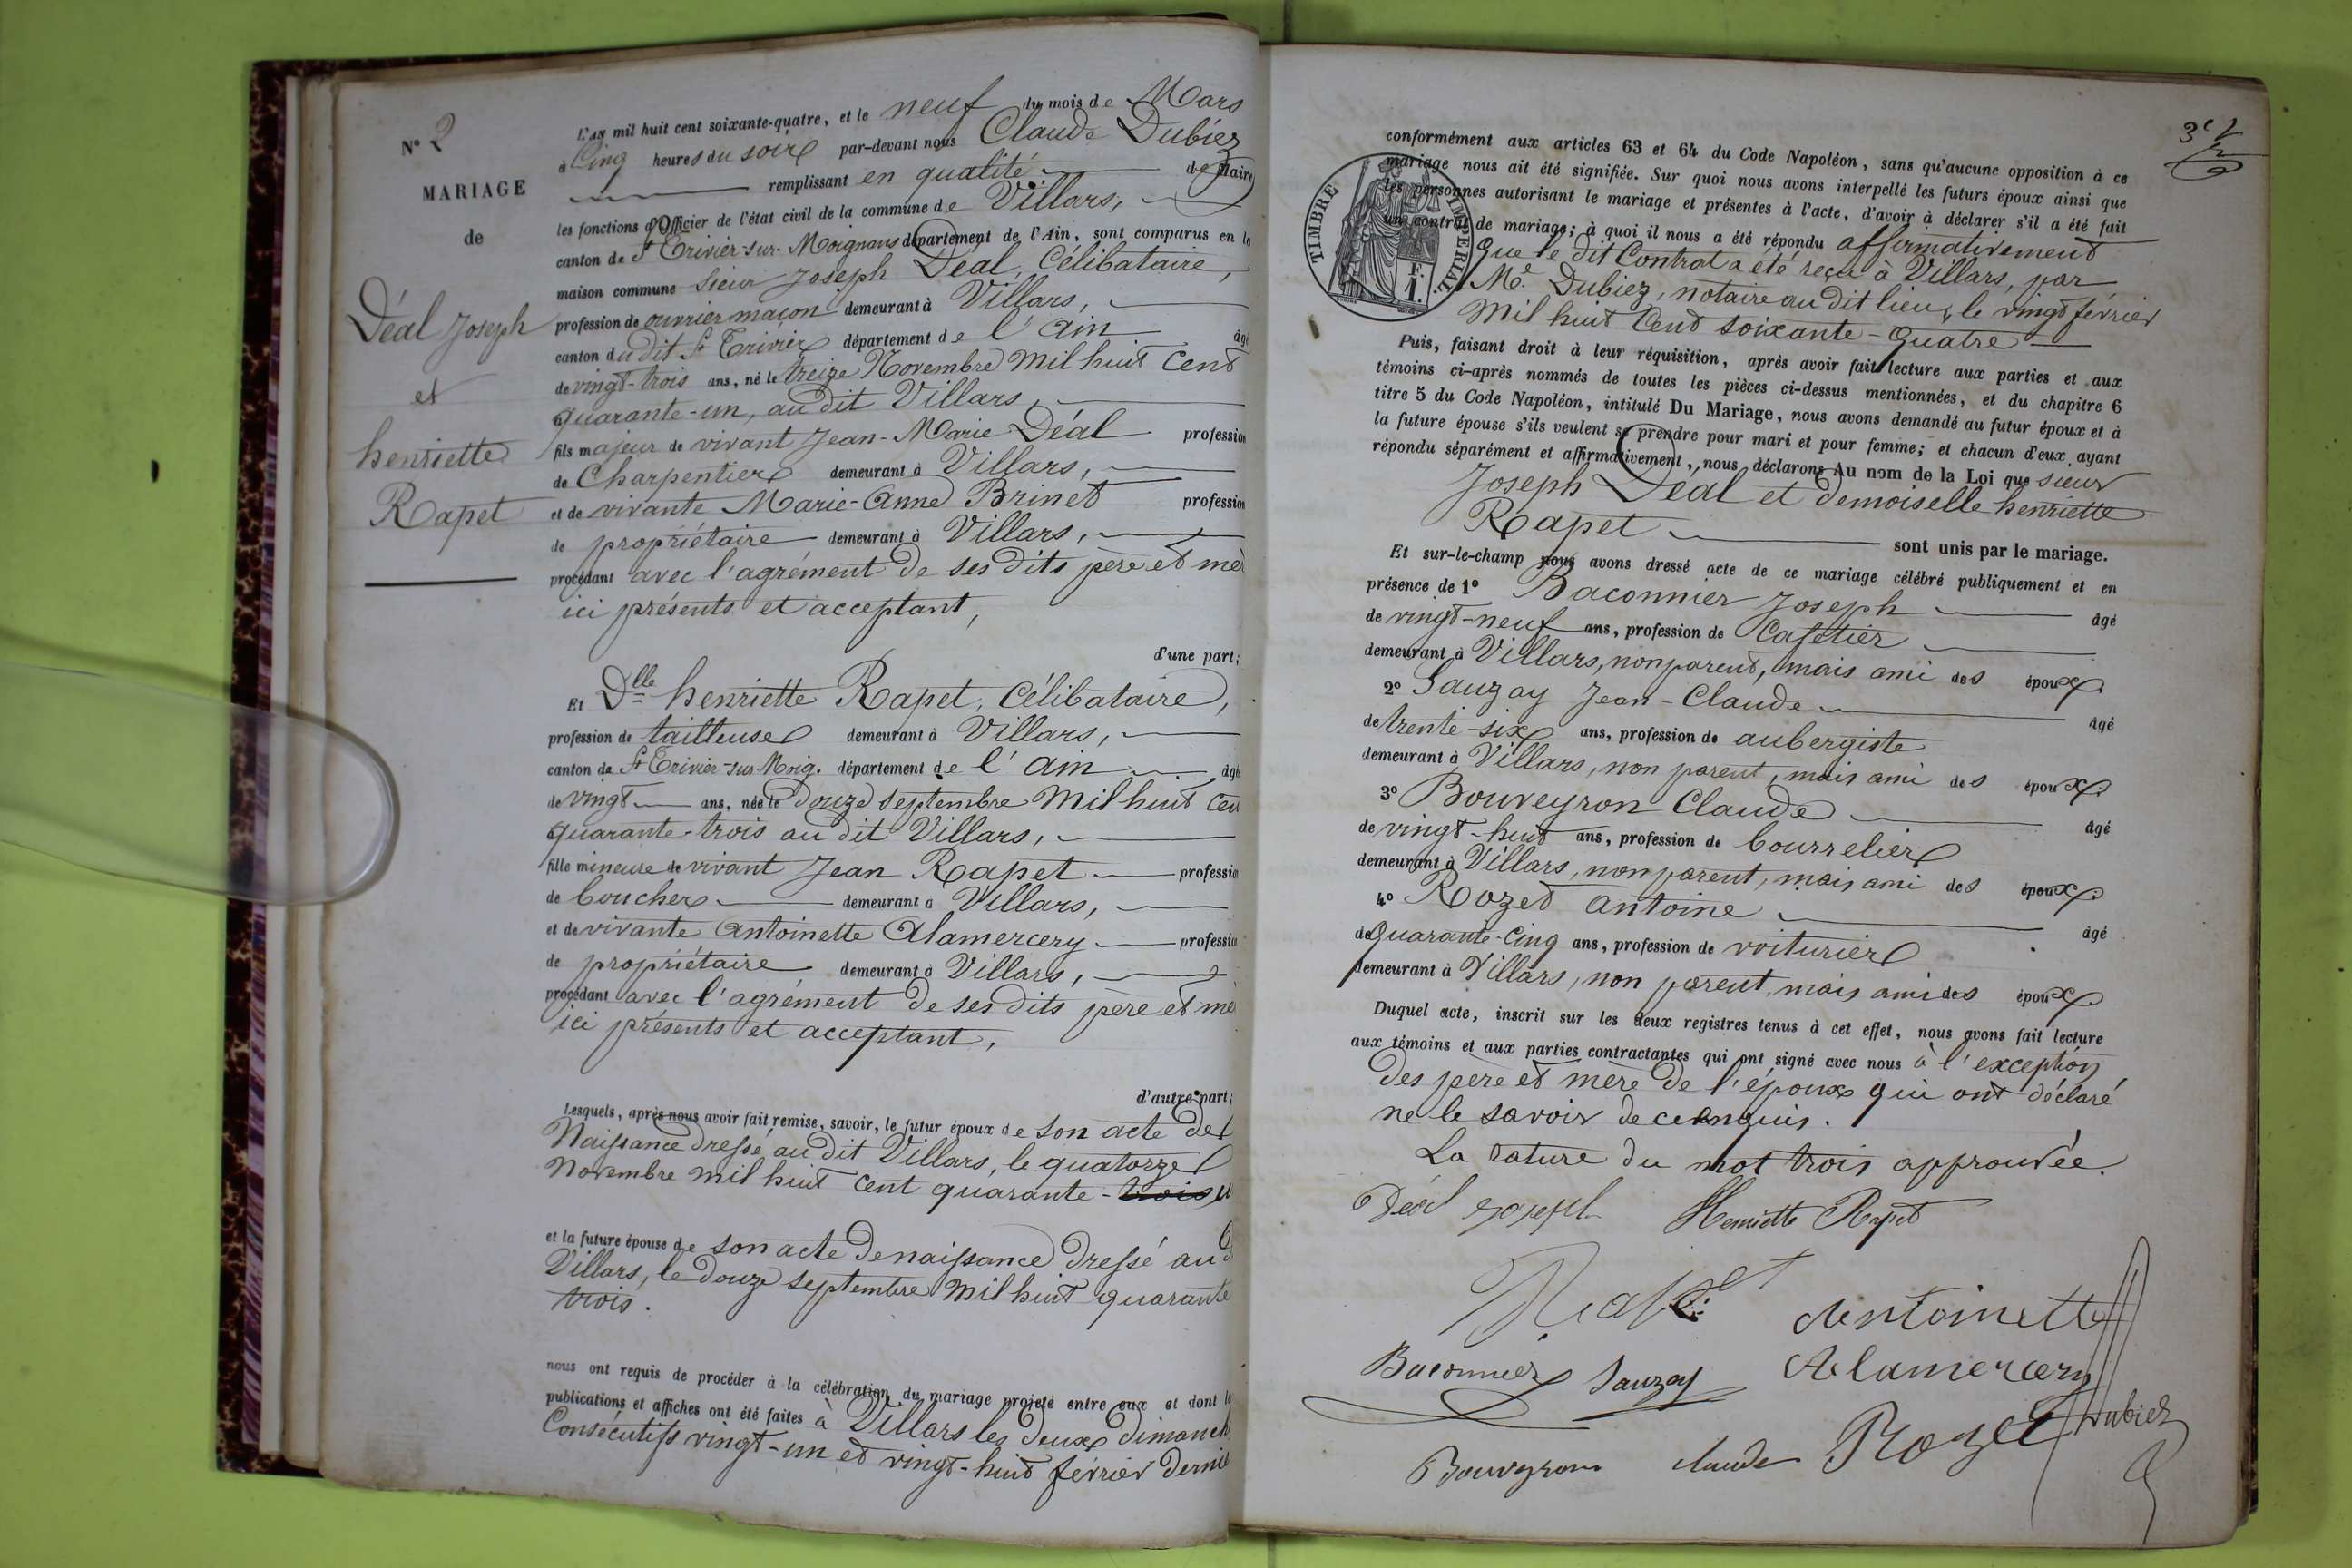 N° 2
MARIAGE
de
Déal Joseph
et
henriette
Rapet
L'an mil huit cent soixante-quatre, et le neuf du mois de Mars
à Cinq heures du soir par-devant nous Claude Dubiez
remplissant en qualité de Maire
les fonctions d'Officier de l'état civil de la commune de Villars,
canton de St Trivier-sur-Moignans département de l'Ain, sont comparus en la
maison commune sieur Joseph Déal, Célibataire,
profession de ouvrier maçon demeurant à Villars,
canton du dit St Trivier département de l'ain âgé
de vingt-trois ans, né le treize Novembre mil huit cent
quarante-un, au dit Villars,
fils majeur de vivant Jean-Marie Déal profession
de Charpentier demeurant à Villars,
et de vivante Marie-Anne Brinet profession
de propriétaire demeurant à Villars,
procédant avec l'agrément de ses dits père et mè
ici présents et acceptant,
d'une part;
Et Dlle henriette Rapet, Célibataire,
profession de tailleuse demeurant à Villars,
canton de St Trivier-sur-Moig. département de l'ain âgé
de vingt ans, née le douze septembre mil huit cen
quarante-trois au dit Villars,
fille mineure de vivant Jean Rapet profession
de boucher demeurant à Villars,
et de vivante Antoinette Alamercery profession
de propriétaire demeurant à Villars,
procédant avec l'agrément de ses dits père et mè
ici présents et acceptant,
d'autre part;
Lesquels, après nous avoir fait remise, savoir, le futur époux de son acte de
Naissance dressé, au dit Villars, le quatorze
Novembre mil huit cent quarante-trois u
et la future épouse de son acte de naissance dressé au d
Villars, le douze septembre mil huit quarante
trois.
nous ont requis de procéder à la célébration du mariage projeté entre eux et dont le
publications et affiches ont été faites à Villars les deux dimanch
Consécutifs vingt-un et vingt-huit février dernie
conformément aux articles 63 et 64 du Code Napoléon, sans qu'aucune opposition à ce
mariage nous ait été signifiée. Sur quoi nous avons interpellé les futurs époux ainsi que
les personnes autorisant le mariage et présentes à l'acte, d'avoir à déclarer s'il a été fait
un contrat de mariage; à quoi il nous a été répondu affirmativement
TIMBRE IMPÉRIAL
F.
1.
Que le dit Contrat a été reçu à Villars, par
Me. Dubiez, notaire au dit lieu, le vingt février
mil huit Cent soixante-quatre
Puis, faisant droit à leur réquisition, après avoir fait lecture aux parties et aux
témoins ci-après nommés de toutes les pièces ci-dessus mentionnées, et du chapitre 6
titre 5 du Code Napoléon, intitulé Du Mariage, nous avons demandé au futur époux et à
la future épouse s'ils veulent se prendre pour mari et pour femme; et chacun d'eux ayant
répondu séparément et affirmativement, nous déclarons Au nom de la Loi que sieur
Joseph Déal et demoiselle henriette
Rapet sont unis par le mariage.
Et sur-le-champ nous avons dressé acte de ce mariage célébré publiquement et en
présence de 1° Baconnier Joseph âgé
de vingt-neuf ans, profession de Cafetier
demeurant à Villars, non parent, mais ami des époux
2° Sauzay Jean-Claude âgé
de trente-six ans, profession de aubergiste
demeurant à Villars, non parent, mais ami des époux
3° Bouveyron Claude âgé
de vingt-huit ans, profession de bourrelier
demeurant à Villars, non parent, mais ami des époux
4° Rozet antoine âgé
de quarante-cinq ans, profession de voiturier
demeurant à Villars, non parent, mais ami des époux
Duquel acte, inscrit sur les deux registres tenus à cet effet, nous avons fait lecture
aux témoins et aux parties contractantes qui ont signé avec nous à l'exception
des père et mère de l'époux qui ont déclaré
ne le savoir de ce enquis.
La rature du mot trois approuvée.
Déal joseph Henriette Rapet
Rapet Antoinette
Baconnier Sauzay Alamercery
Bouveyron claude Rozet Dubiez